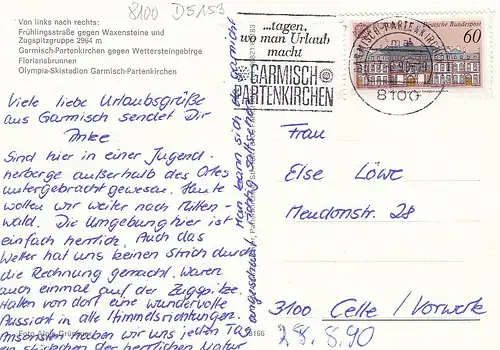 8100 D5153
Von links nach rechts:
Frühlingsstraße gegen Waxensteine und
Zugspitzgruppe 2964 m
Garmisch-Partenkirchen gegen Wettersteingebirge
Floriansbrunnen
Olympia-Skistadion Garmisch-Partenkirchen
Viele liebe Urlaubsgrüße
aus Garmisch sendet Dir
Anke
Sind hier in einer Jugend-
herberge außerhalb des Ortes
untergebracht gewesen. Heute
wollen wir weiter nach Mitten-
wald. Die Umgebung hier ist
einfach herrlich. Auch das
Wetter hat uns keinen Strich durch
die Rechnung gemacht. Waren
auch einmal auf der Zugspitze.
Hatten von dort eine wundervolle
Aussicht in alle Himmelsrichtungen.
Ansonsten haben wir uns jeden Tag
an der herrlichen Natur
Man kann sich gar nicht
...tagen,
wo man Urlaub
macht
GARMISCH
PARTENKIRCHEN
GARMISCH-PARTENKIRCHEN
8100
Deutsche Bundespost
60
Frau
Else Löwe
Mendonstr. 28
3100 Celle / Vorwerk
28.8.90
8166